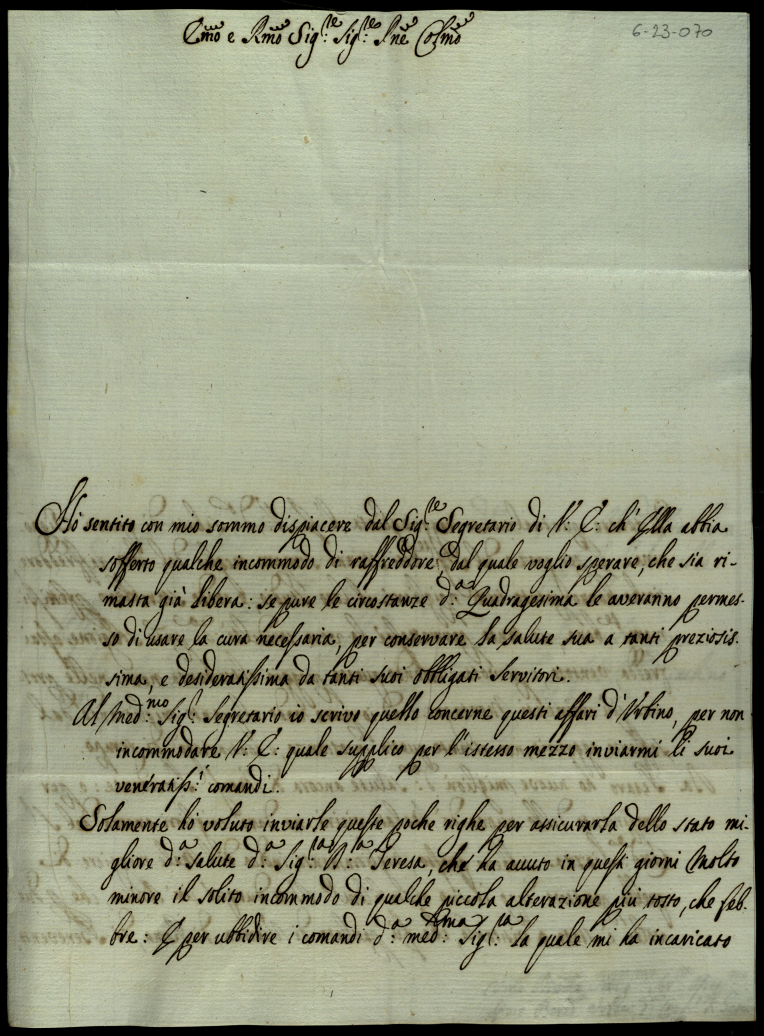 Emo e Rmo Sig.re Sig.re Pne Colmo
6-23-070
Hò sentito con mio sommo dispiacere dal Sig.re Segretario di V: E: ch'Ella abbia
sofferto qualche incommodo di raffreddore, dal quale voglio sperare, che sia ri-
masta già libera: se pure le circostanze d:a Quadragesima le averanno permes-
so di usare la cura necessaria, per conservare la salute sua a tanti preziosis-
sima, e desideratissima da tanti suoi obbligati servitori.
Al med:mo Sig.r Segretario io scrivo quello concerne questi affari d'Urbino, per non
incommodare V: E: quale supplico per l'istesso mezzo inviarmi li suoi
veneratiss:i comandi.
Solamente hò voluto inviarle queste poche righe per assicurarla dello stato mi-
gliore d:a salute d:a Sig:ra N:a Teresa, che hà avuto in questi giorni molto
minore il solito incommodo di qualche piccola alterazione più tosto, che feb-
bre: E per ubbidire i comandi d:a med:ma Sig:ra la quale mi ha incaricato